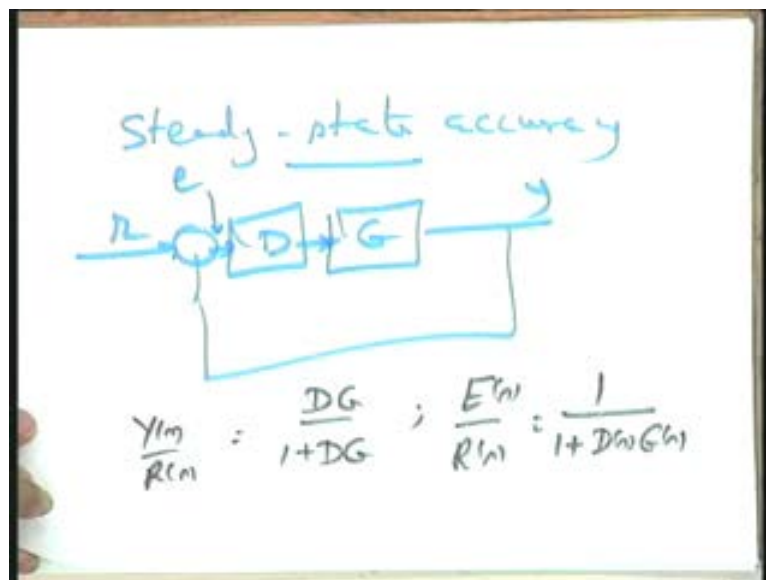 Steady-state accuracy
e
r y
D G
Y(s)/R(s) = DG/1+DG ; E(s)/R(s) = 1/1+D(s)G(s)